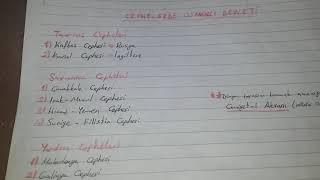 CEPHELERDE OSMANLI DEVLETİ
Taarruz Cepheleri
1) Kafkas Cephesi → Rusya
2) Kanal Cephesi → İngiltere
Savunma Cepheleri
1) Çanakkale Cephesi
2) Irak-Musul Cephesi
3) Hicaz-Yemen Cephesi
4) Suriye-Filistin Cephesi
Yardım Cepheleri
1) Makedonya Cephesi
2) Galiçya Cephesi